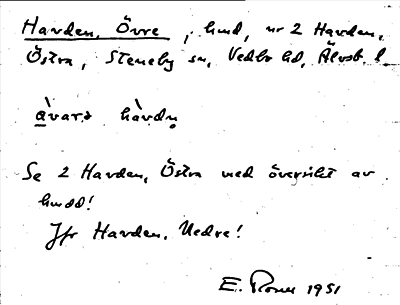 Harden, Övre, hmd, nr 2 Harden,
Östra, Steneby sn, Vedbo hd, Älvsb. l.
å̀varə hàvdn̥
Se 2 Harden, Östra med översikt av
hmdd!
Jfr Harden, Nedre!
E. 1951